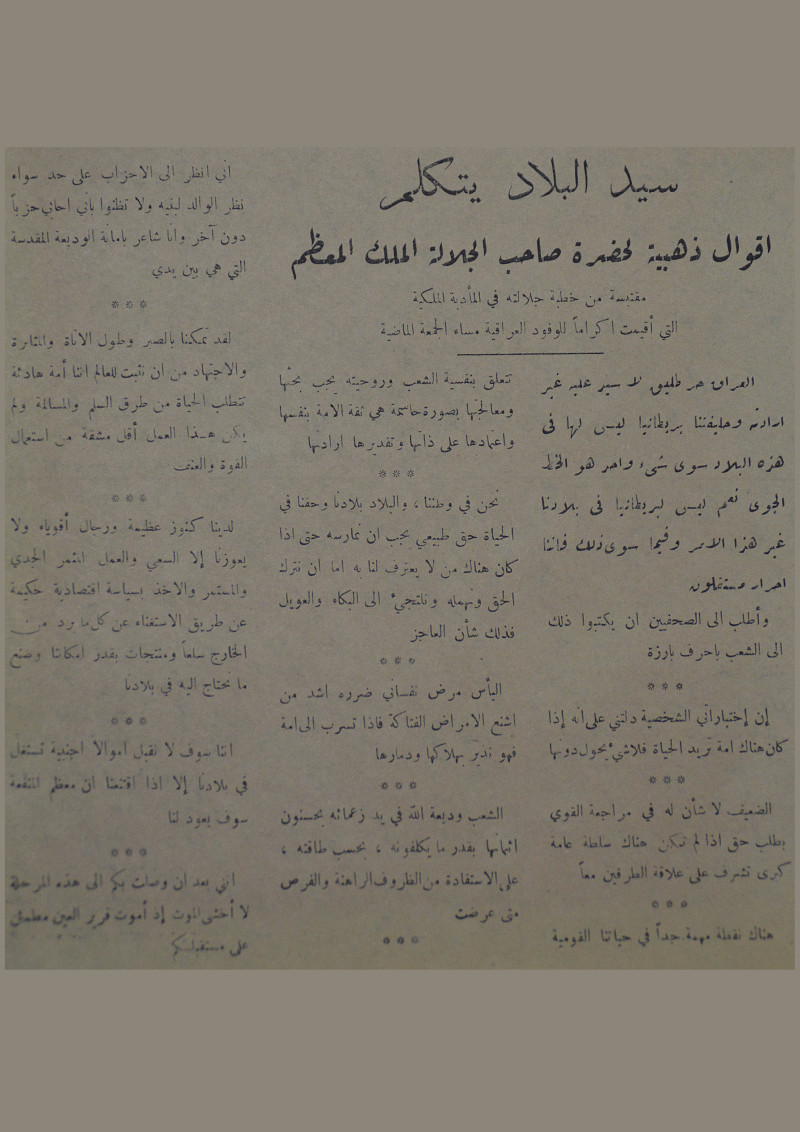 سيد البلاد يتكلم
اقوال ذهبية لحضرة صاحب الجلالة الملك المعظم
مقتبسة من خطبة جلالته في المأدبة الملكية
التي أقيمت اكراماً للوفود العراقية مساء الجمعة الماضية
العراق حر طليق لا سير عليه غير
ارادته وحليفتنا بريطانيا ليس لها في
هذه البلاد سوى شيء واحد هو الخط
الجوى نعم ليس لبريطانيا في بلادنا
غير هذا الامر وفيما سوى ذلك فاننا
احرار مستقلون
وأطلب الى الصحفيين ان يكتبوا ذلك
الى الشعب باحرف بارزة
***
إن إختباراتي الشخصية دلتني على انه إذا
كان هناك امة تريد الحياة فلاشيء يحول دونها
***
الضعيف لا شأن له في مراجعة القوي
بطلب حق اذا لم تكن هناك سلطة عامة
كبرى تشرف على علاقة الطرفين معاً
***
هناك نقطة مهمة جداً في حياتنا القومية
تتعلق بنفسية الشعب وروحيته يجب بحثها
ومعالجتها بصورة حاسمة هي ثقة الامة بنفسها
واعتمادها على ذاتها وتقديرها ارادتها
***
نحن في وطننا ، والبلاد بلادنا وحقنا في
الحياة حق طبيعي يجب ان نمارسه حتى اذا
كان هناك من لا يعترف لنا به اما ان نترك
الحق ونهمله ونلتجيء الى البكاء والعويل
فذلك شأن العاجز
***
اليأس مرض نفساني ضرره اشد من
اشنع الامراض الفتاكة فاذا تسرب الى امة
فهو نذير بهلاكها ودمارها
***
الشعب وديعة الله في يد زعمائه يحسنون
ائمانها بقدر ما يكلفونه ، بحسب طاقته ،
على الاستفادة من الظروف الراهنة والفرص
متى عرضت
***
اني انظر الى الاحزاب على حد سواء
نظر الوالد لبنيه ولا تظنوا باني احابي حزباً
دون آخر وانا شاعر بامانة الوديعة المقدسة
التي هي بين يدي
***
لقد تمكنا بالصبر وطول الاناة والمثابرة
والاجتهاد من ان نثبت للعالم اننا أمة هادئة
تتطلب الحياة من طرق السلم والمسالمة ولم
يكن هذا العمل أقل مشقة من استعمال
القوة والعنف
***
لدينا كنوز عظيمة ورجال أقوياء ولا
يعوزنا إلا السعي والعمل المثمر الجدي
والمستمر والاخذ بسياسة اقتصادية حكيمة
عن طريق الاستغناء عن كل ما يرد من
الخارج سلعاً ومنتجات بقدر امكاننا وصنع
ما نحتاج اليه في بلادنا
***
اننا سوف لا نقبل أموالا اجنبية تستغل
في بلادنا إلا اذا اقتنعنا ان معظم المنفعة
سوف يعود لنا
***
انني بعد ان وصلت بكم الى هذه المرحلة
لا أخشى الموت إذ أموت قرير العين مطمئن
على مستقبلكم